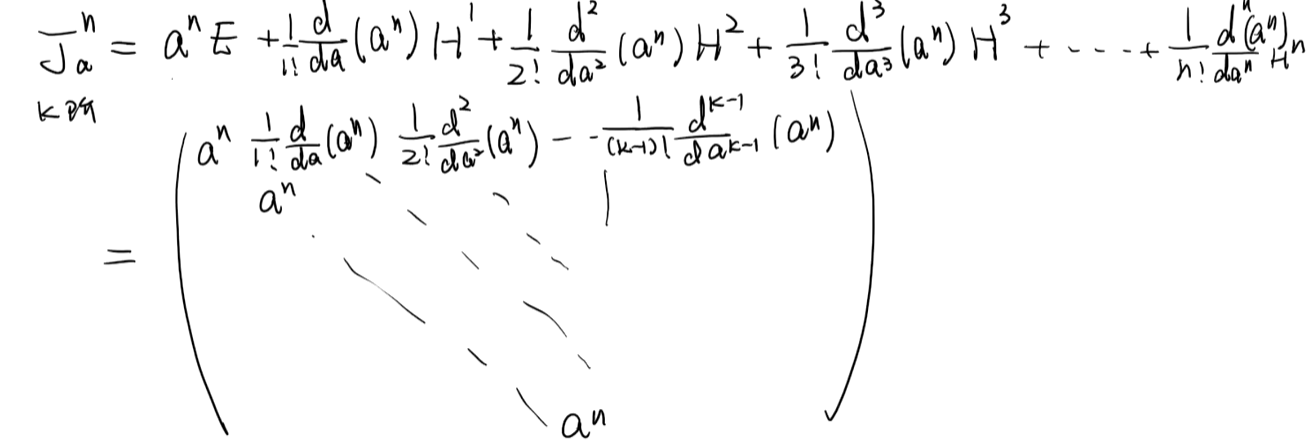 J_a^n = a^n E + \frac{1}{1!}\frac{d}{da}(a^n) H^1 + \frac{1}{2!}\frac{d^2}{da^2}(a^n) H^2 + \frac{1}{3!}\frac{d^3}{da^3}(a^n) H^3 + ---- + \frac{1}{n!}\frac{d^n(a^n)}{da^n} H^n
K阶
a^n \frac{1}{1!}\frac{d}{da}(a^n) \frac{1}{2!}\frac{d^2}{da^2}(a^n) --- \frac{1}{(k-1)!}\frac{d^{k-1}}{da^{k-1}}(a^n)
a^n
=
a^n